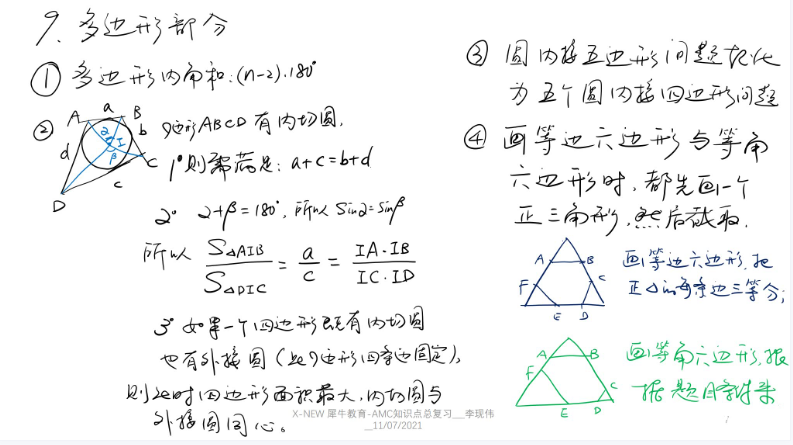 9、多边形部分
① 多边形内角和:(n-2)·180°
② 四边形ABCD有内切圆,
A a B
b
α I
β
d
C
c
D
1° 则需满足: a+c=b+d
2° α+β=180°, 所以 Sinα=Sinβ
所以 S△AIB / S△DIC = a/c = IA·IB / IC·ID
3° 如果一个四边形既有内切圆
也有外接圆(此四边形四条边固定),
则此时四边形面积最大,内切圆与
外接圆同心。
③ 圆内接五边形问题转化
为五个圆内接四边形问题
④ 画等边六边形与等角
六边形时,都先画一个
正三角形,然后截取.
A B
F C
E D
画等边六边形,把
正△的每条边三等分;
A B
F C
E D
画等角六边形,根
据题目条件来
X-NEW 犀牛教育-AMC知识点总复习__李现伟
__11/07/2021